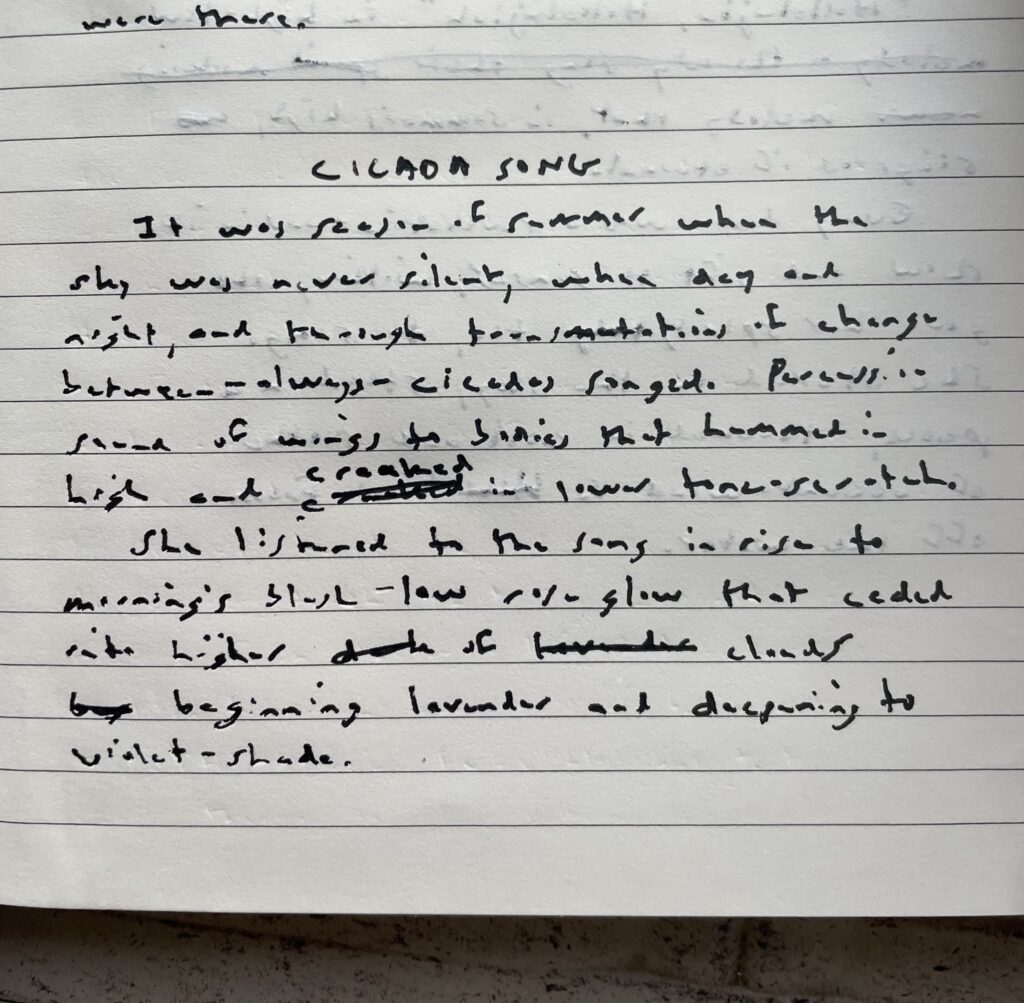 were there.
CICADA SONG
It was season of summer when the
sky was never silent, when day and
night, and through transmutations of change
between - always - cicadas songed. Percussion
sound of wings to bodies that hummed in
high and creaked in lower tone-scratch.
She listened to the song in rise to
morning's blush - low rose glow that ceded
into higher of clouds
beginning lavender and deepening to
violet-shade.